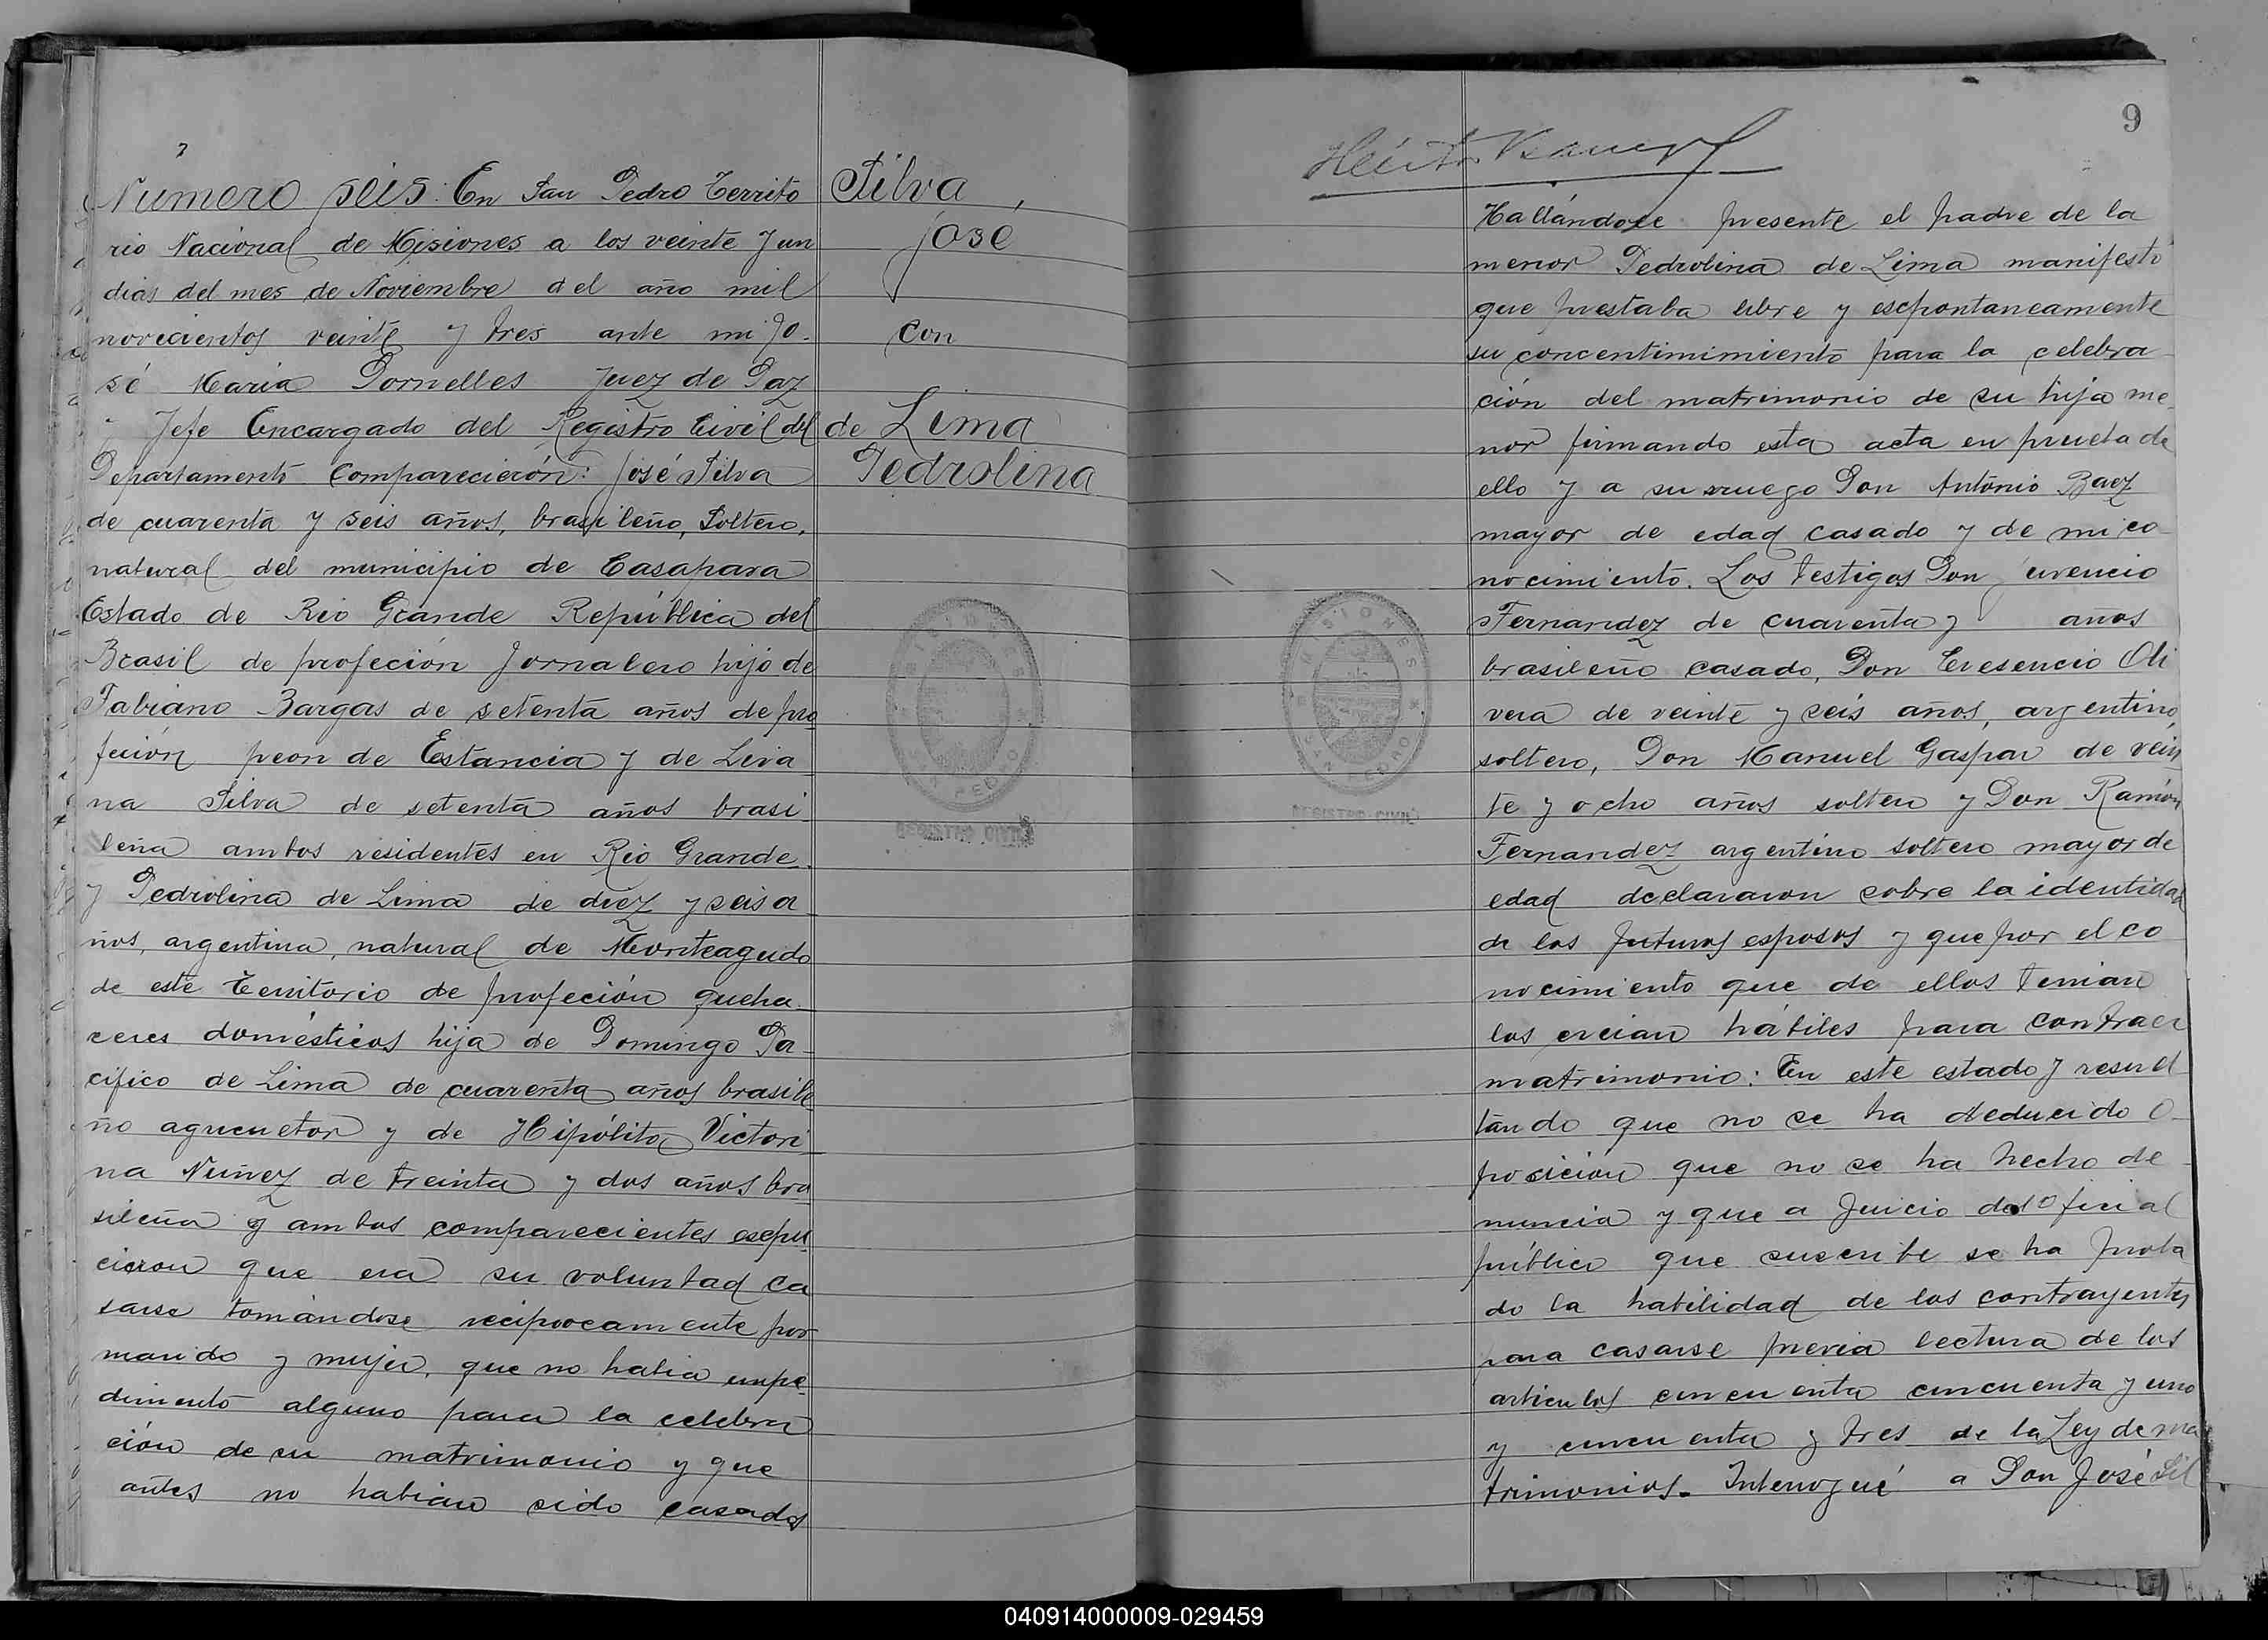 Número seis: En San Pedro Territo
rio Nacional de Misiones a los veinte y un
dias del mes de Noviembre del año mil
novecientos veinte y tres ante mi Jo-
sé Maria Dornelles Juez de Paz
y Jefe Encargado del Registro Civil del
Departamento comparecierón: José Silva
de cuarenta y seis años, brasileño, soltero,
natural del municipio de Casapara
Estado de Rio Grande República del
Brasil de profeción Jornalero hijo de
Fabiano Bargas de setenta años de pro
feción peon de Estancia y de Liria
na Silva de setenta años brasi
leña ambos residentes en Rio Grande
y Pedrolina de Lima de diez y seis a
ños, argentina, natural de Monteagudo
de este Territorio de profeción queha
ceres domésticos hija de Domingo Pa
cifico de Lima de cuarenta años brasile
ño agricultor y de Hipólita Victori
na Nuñez de treinta y dos años bra
sileña y ambos comparecientes espu
cieron que era su voluntad ca
sarse tomándose reciprocamente por
marido y mujer, que no habia impe
dimento alguno para la celebra
ción de su matrimonio y que
antes no habian sido casados
Silva,
José
con
de Lima
Pedrolina
MISIONES
SAN PEDRO
REGISTRO CIVIL
9
Hallándose presente el padre de la
menor Pedrolina de Lima manifesto
que prestaba libre y espontaneamente
su concentimimiento para la celebra
ción del matrimonio de su hija me
nor firmando esta acta en prueba de
ello y a su ruego Don Antonio Baez
mayor de edad casado y de mi co
nocimiento. Los testigos Don Juvencio
Fernandez de cuarenta y años
brasileño casado, Don Cresencio Oli
vera de veinte y seis años, argentino,
soltero, Don Manuel Gaspar de vein
te y ocho años soltero y Don Ramón
Fernandez argentino soltero mayor de
edad declararon sobre la identidad
de los futuros esposos y que por el co
nocimiento que de ellos tenian
los creian hábiles para contraer
matrimonio: En este estado y resul
tando que no se ha deducido o
posicion que no se ha hecho de
nuncia y que a juicio del Oficial
público que suscribe se ha proba
do la habilidad de los contrayentes
para casarse previa lectura de los
articulos cincuenta cincuenta y uno
y cincuenta y tres de la Ley de ma
trimonios. Interrogué a Don José Sil
MISIONES
SAN PEDRO
REGISTRO CIVIL
040914000009-029459